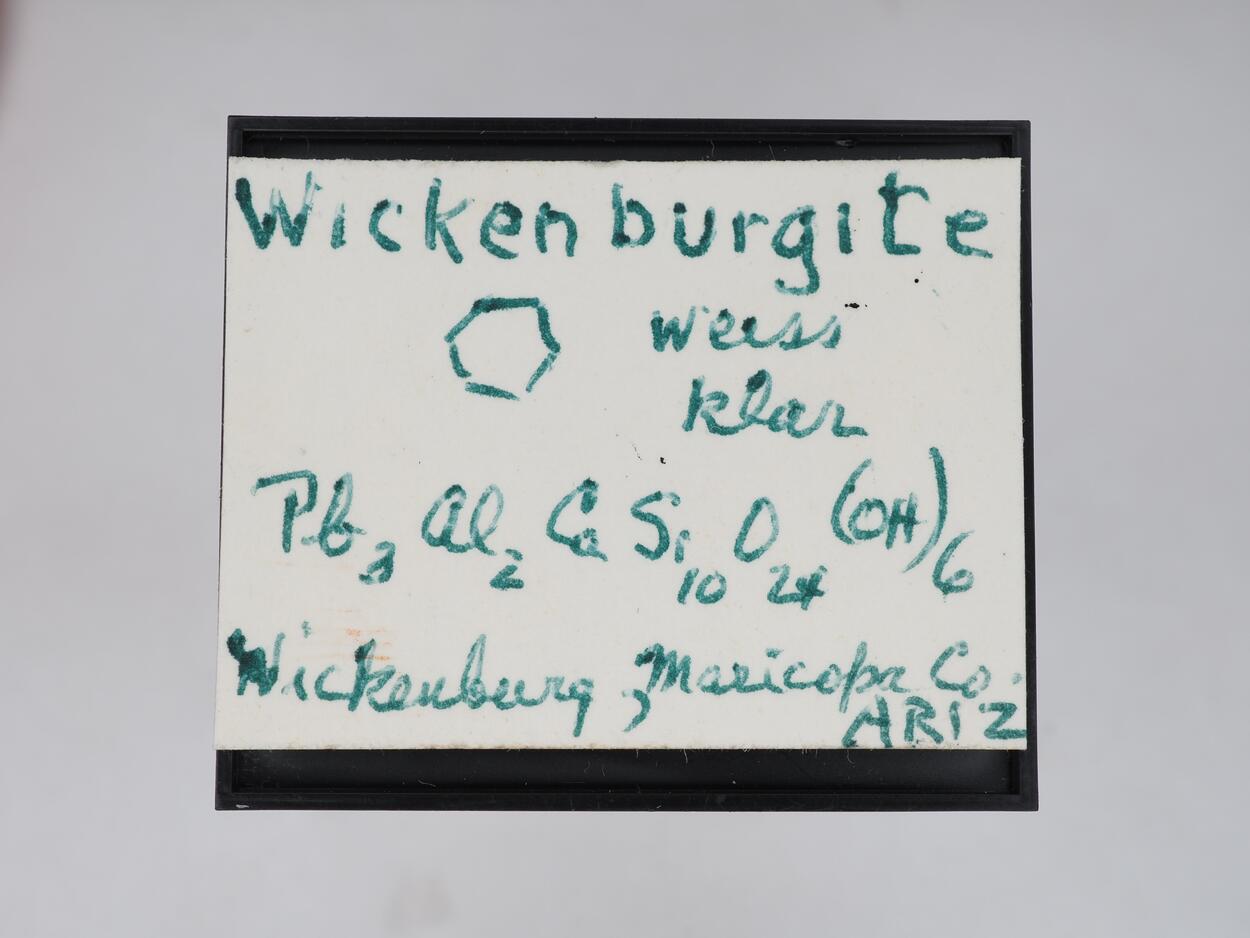 Wickenburgite
weiss
klar
Pb3 Al2 Ca Si10 O24 (OH)6
Wickenburg, Maricopa Co.
ARIZ